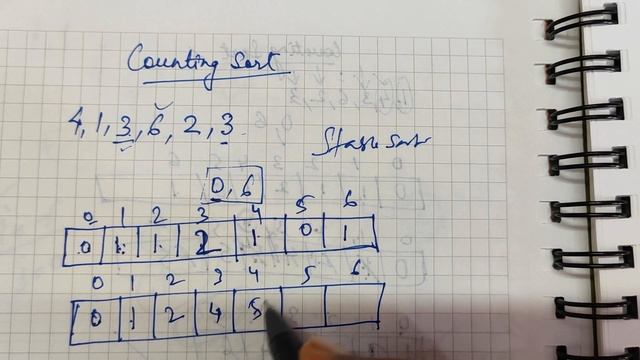 Counting Sort
4, 1, 3, 6, 2, 3
Stable Sort
0, 6
0 1 2 3 4 5 6
0 1 1 2 1 0 1
0 1 2 3 4 5 6
0 1 2 4 5